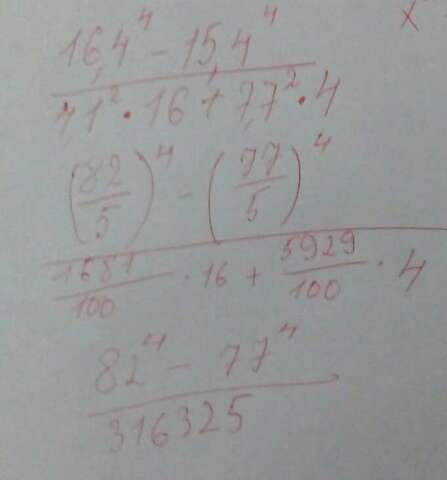 x
16,4⁴ - 15,4⁴
4,1² · 16 + 7,7² · 4
(82/5)⁴ - (77/5)⁴
1681/100 · 16 + 5929/100 · 4
82⁴ - 77⁴
316325